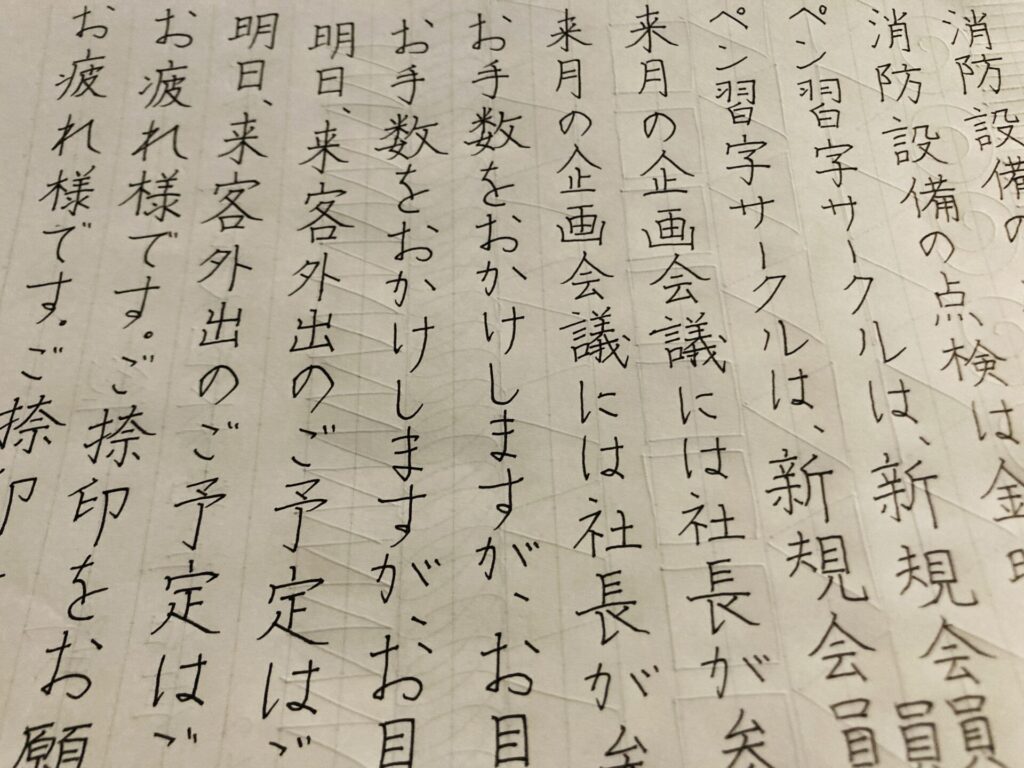 消防設備の
消防設備の点検は金
ペン習字サークルは、新規会員
ペン習字サークルは、新規会員
来月の企画会議には社長が
来月の企画会議には社長が
お手数をおかけしますが、お目
お手数をおかけしますが、お目
明日、来客外出のご予定はご
明日、来客外出のご予定はご
お疲れ様です。ご捺印をお願
お疲れ様です。ご捺